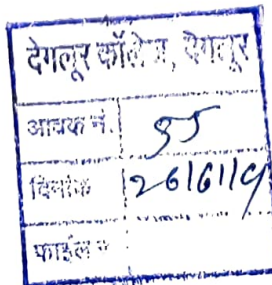 देगलूर कॉलेज, देगलूर
आवक नं.
दिनांक 26/6/19
फाईल नं